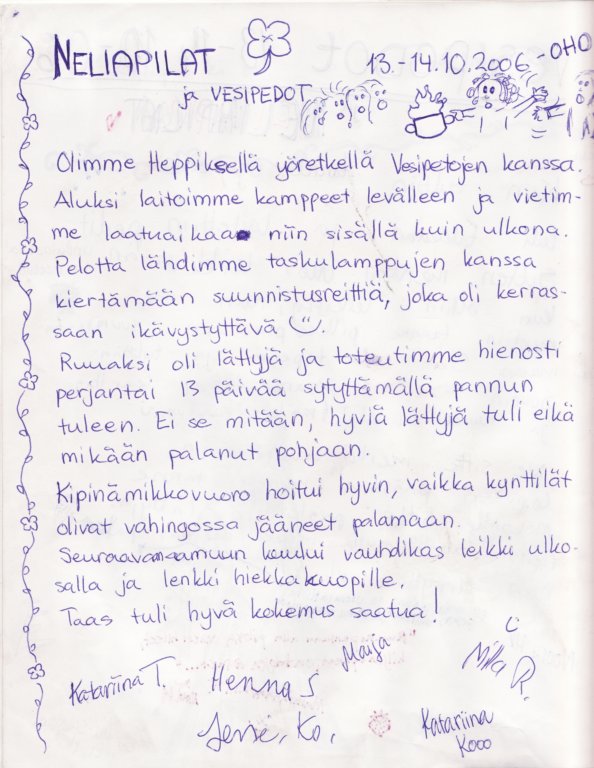 NELIAPILAT
ja VESIPEDOT
13.-14.10.2006
-OHO
Olimme Heppiksellä yöretkellä Vesipetojen kanssa.
Aluksi laitoimme kamppeet levälleen ja vietim-
me laatuaikaa niin sisällä kuin ulkona.
Pelotta lähdimme taskulamppujen kanssa
kiertämään suunnistusreittiä, joka oli kerras-
saan ikävystyttävä
Ruuaksi oli lättyjä ja toteutimme hienosti
perjantai 13 päivää sytyttämällä pannun
tuleen. Ei se mitään, hyviä lättyjä tuli eikä
mikään palanut pohjaan.
Kipinämikkovuoro hoitui hyvin, vaikka kynttilät
olivat vahingossa jääneet palamaan.
Seuraavan aamuun kuului vauhdikas leikki ulko-
salla ja lenkki hiekkakuopille.
Taas tuli hyvä kokemus saatua!
Katariina T.
Henna S
Maija
Milla R.
Jenni. Ko.
Katariina
Kooo